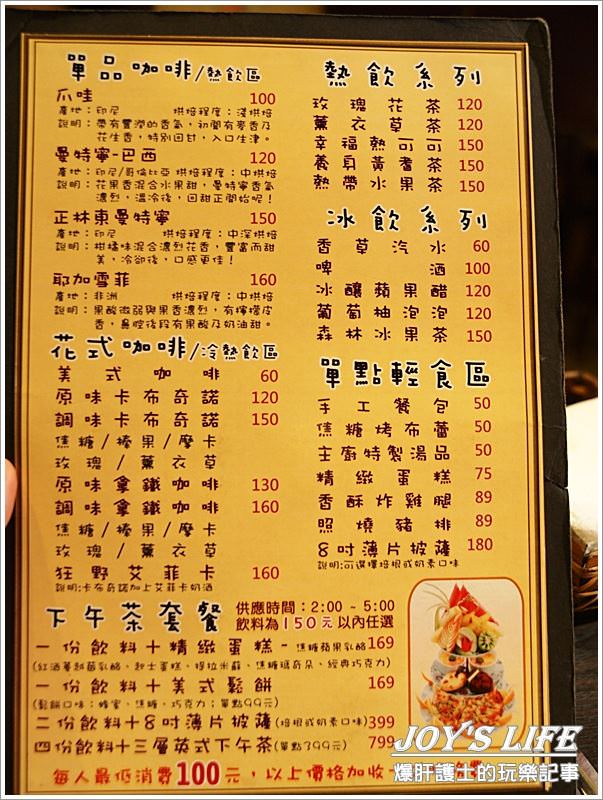 單品咖啡/熱飲區
爪哇 100
產地：印尼 烘焙程度：淺烘焙
說明：帶有豐潤的香氣，初聞有麥香及
花生香，特別回甘，入口生津。
曼特寧-巴西 120
產地：印尼/哥倫比亞 烘焙程度：中烘焙
說明：花果香混合水果甜，曼特寧香氣
濃烈，溫冷後，回甜正開始呢！
正林東曼特寧 150
產地：印尼 烘焙程度：中深烘焙
說明：柑橘味混合濃烈花香，豐富而甜
美，冷卻後，口感更佳！
耶加雪菲 160
產地：非洲 烘焙程度：中烘焙
說明：果酸微弱與果香濃烈，有檸檬皮
香，鼻腔後段有果酸及奶油甜。
花式咖啡/冷熱飲區
美式咖啡 60
原味卡布奇諾 120
調味卡布奇諾 150
焦糖/榛果/摩卡
玫瑰/薰衣草
原味拿鐵咖啡 130
調味拿鐵咖啡 160
焦糖/榛果/摩卡
玫瑰/薰衣草
狂野艾菲卡 160
說明:卡布奇諾加上艾菲卡奶酒
熱飲系列
玫瑰花茶 120
薰衣草茶 120
幸福熱可可 150
養身黃耆茶 150
熱帶水果茶 150
冰飲系列
香草汽水 60
啤酒 100
冰釀蘋果醋 120
葡萄柚泡泡 120
森林冰果茶 150
單點輕食區
手工餐包 50
焦糖烤布蕾 50
主廚特製湯品 50
精緻蛋糕 75
香酥炸雞腿 89
照燒豬排 89
8吋薄片披薩 180
說明:可選擇培根或奶素口味
下午茶套餐 供應時間：2:00 ~ 5:00
飲料為150元以內任選
一份飲料＋精緻蛋糕-焦糖蘋果乳酪169
起士蛋糕、提拉米蘇、焦糖瑪奇朵、經典巧克力)
一份飲料＋美式鬆餅 169
(鬆餅口味：蜂蜜、焦糖、巧克力；單點99元)
二份飲料＋8吋薄片披薩(培根或奶素口味)399
四份飲料＋三層英式下午茶(單點799元) 799
每人最低消費100元，以上價格加收一
JOY'S LIFE
爆肝護士的玩樂記事